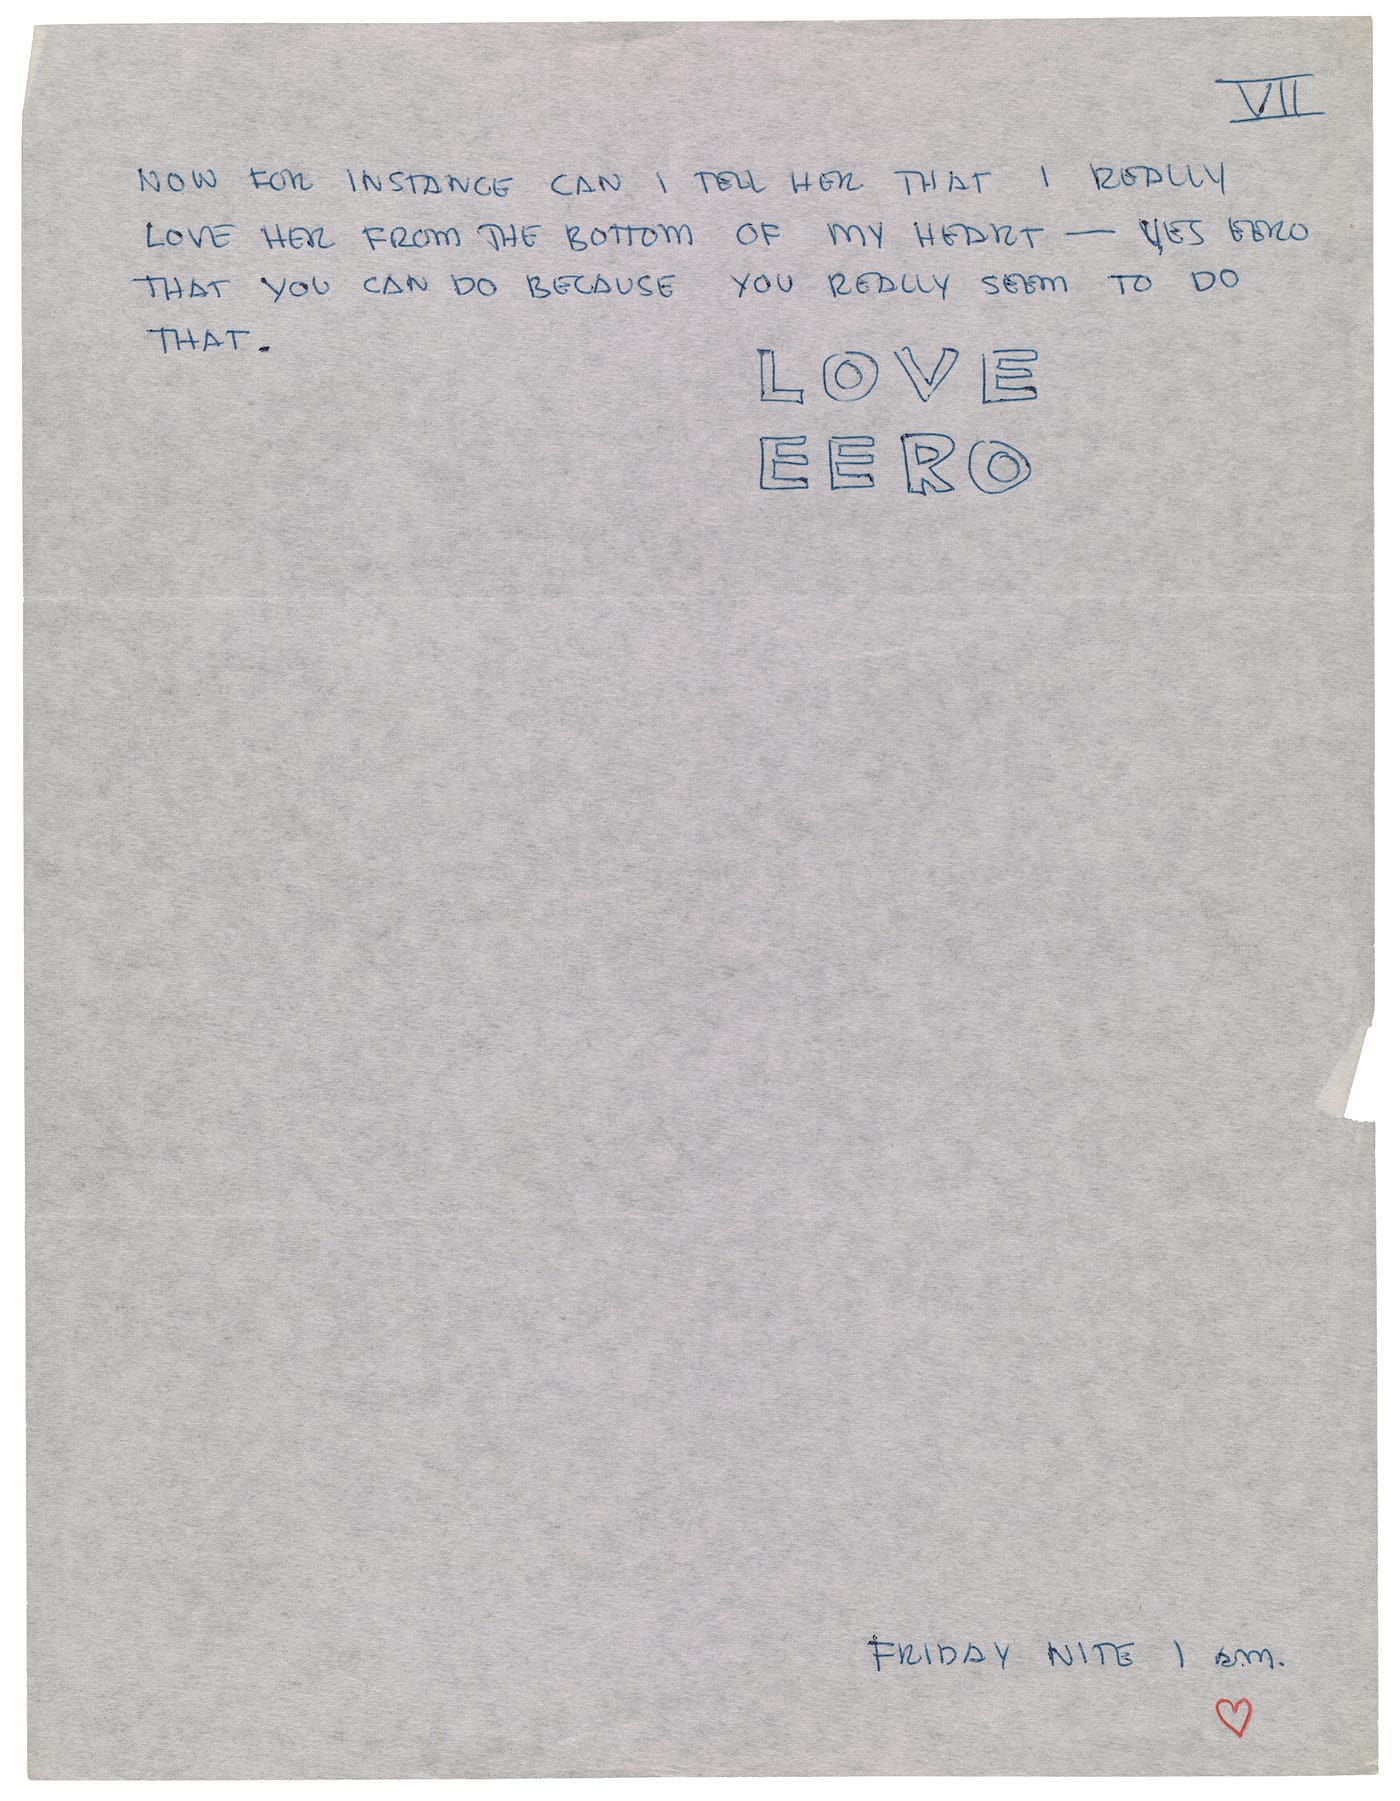 VII
NOW FOR INSTANCE CAN I TELL HER THAT I REALLY
LOVE HER FROM THE BOTTOM OF MY HEART — YES EERO
THAT YOU CAN DO BECAUSE YOU REALLY SEEM TO DO
THAT.
LOVE
EERO
FRIDAY NITE 1 a.m.